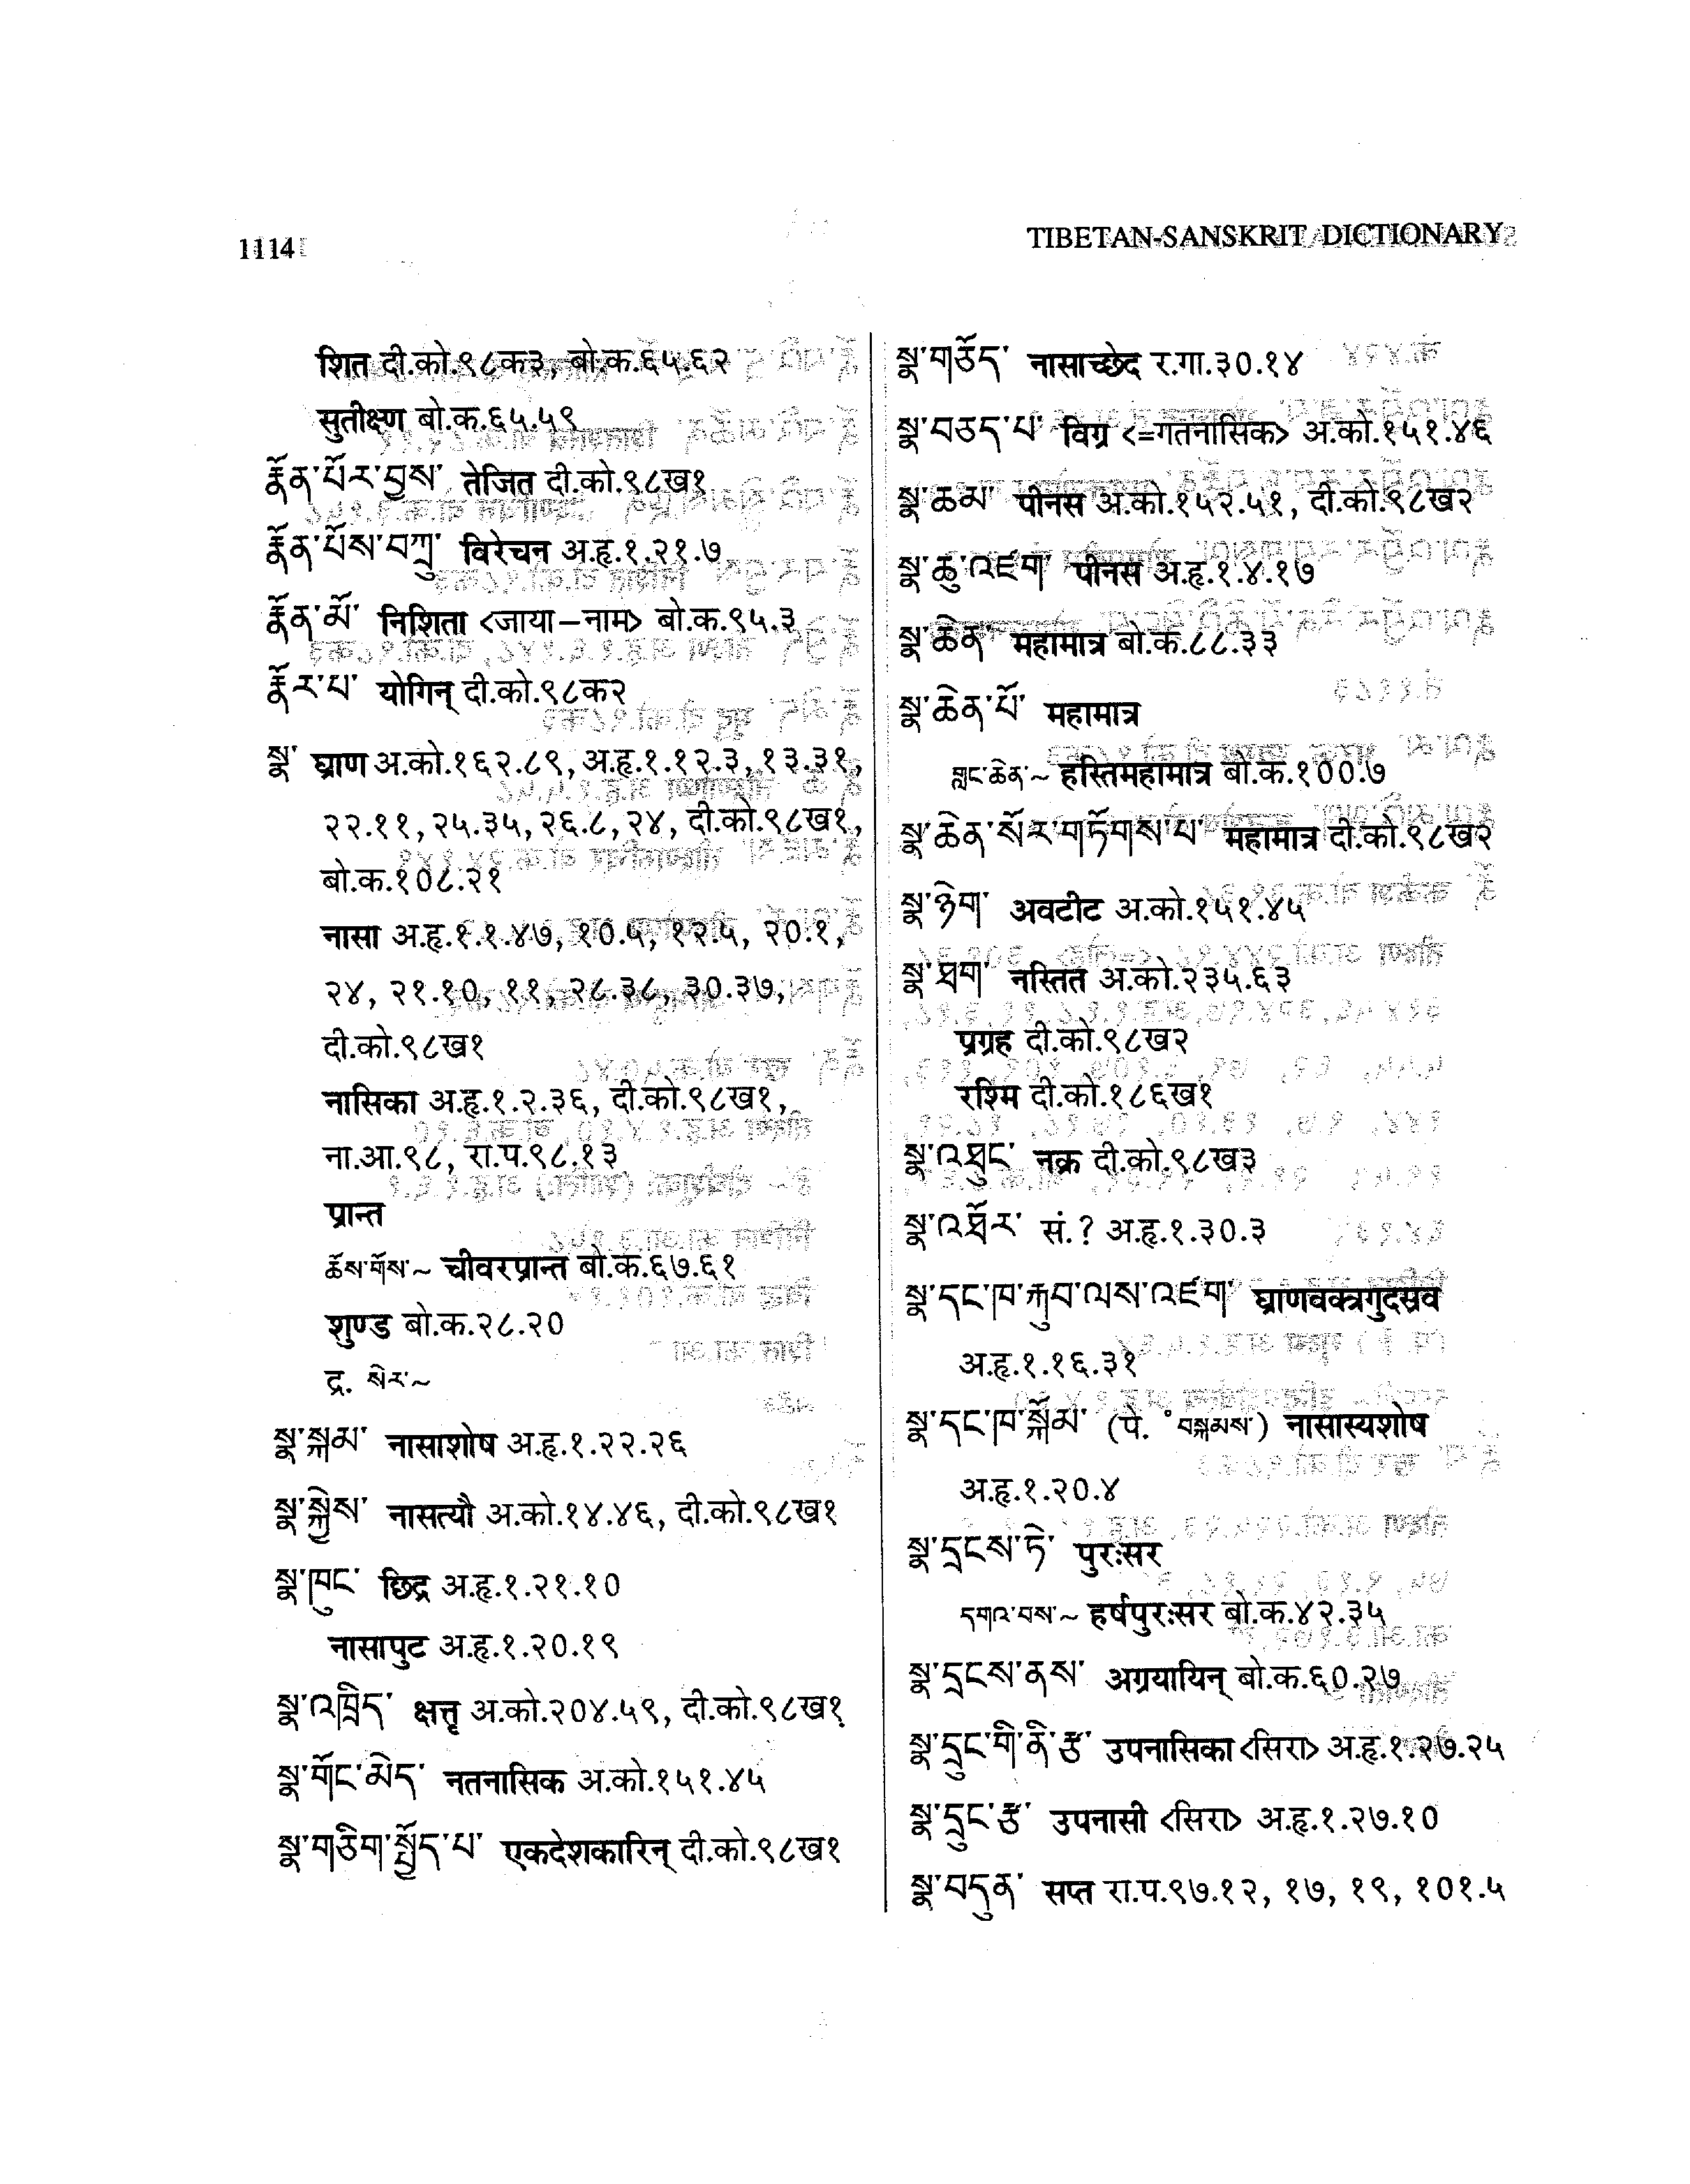 1114
TIBETAN-SANSKRIT DICTIONARY
शित दी.को.९८क३, बो.क.६५.६२
सुतीक्ष्ण बो.क.६५.५९
རྣོན་པོར་བྱས་ तेजित दी.को.९८ख१
རྣོན་པོས་བཀྲུ་ विरेचन अ.हृ.१.२१.७
རྣོན་མོ་ निशिता <जाया–नाम> बो.क.९५.३
རྣོར་པ་ योगिन् दी.को.९८क२
སྣ་ घ्राण अ.को.१६२.८९, अ.हृ.१.१२.३, १३.३१,
२२.११, २५.३५, २६.८, २४, दी.को.९८ख१,
बो.क.१०८.२१
नासा अ.हृ.१.१.४७, १०.५, १२.५, २०.१,
२४, २१.१०, ११, २८.३८, ३०.३७,
दी.को.९८ख१
नासिका अ.हृ.१.२.३६, दी.को.९८ख१,
ना.आ.९८, रा.प.९८.१३
प्रान्त
ཆོས་གོས་~ चीवरप्रान्त बो.क.६७.६१
शुण्ड बो.क.२८.२०
द्र. སེར་~
སྣ་སྐམ་ नासाशोष अ.हृ.१.२२.२६
སྣ་སྐྱེས་ नासत्यौ अ.को.१४.४६, दी.को.९८ख१
སྣ་ཁུང་ छिद्र अ.हृ.१.२१.१०
नासापुट अ.हृ.१.२०.१९
སྣ་འཁྲིད་ क्षत्तृ अ.को.२०४.५९, दी.को.९८ख१
སྣ་གོང་མེད་ नतनासिक अ.को.१५१.४५
སྣ་གཅིག་སྤྱོད་པ་ एकदेशकारिन् दी.को.९८ख१
སྣ་གཅོད་ नासाच्छेद र.गा.३०.१४
སྣ་བཅད་པ་ विग्र <=गतनासिक> अ.को.१५१.४६
སྣ་ཆམ་ पीनस अ.को.१५२.५१, दी.को.९८ख२
སྣ་ཆུ་འཛག་ पीनस अ.हृ.१.४.१७
སྣ་ཆེན་ महामात्र बो.क.८८.३३
སྣ་ཆེན་པོ་ महामात्र
གླང་ཆེན་~ हस्तिमहामात्र बो.क.१००.७
སྣ་ཆེན་སོར་གཏོགས་པ་ महामात्र दी.को.९८ख२
སྣ་ཉེག་ अवटीट अ.को.१५१.४५
སྣ་ཐག་ नस्तित अ.को.२३५.६३
प्रग्रह दी.को.९८ख२
रश्मि दी.को.१८६ख१
སྣ་འཐུང་ नक्र दी.को.९८ख३
སྣ་འཐོར་ सं.? अ.हृ.१.३०.३
སྣ་དང་ཁ་རྐུབ་ལས་འཛག་ घ्राणवक्त्रगुदस्रव
अ.हृ.१.१६.३१
སྣ་དང་ཁ་སྐོམ་ (पे. ° བསྐམས་) नासास्यशोष
अ.हृ.१.२०.४
སྣ་དྲངས་ཏེ་ पुरःसर
དགའ་བས་~ हर्षपुरःसर बो.क.४२.३५
སྣ་དྲངས་ནས་ अग्रयायिन् बो.क.६०.२७
སྣ་དྲུང་གི་ནི་རྩ་ उपनासिका <सिरा> अ.हृ.१.२७.२५
སྣ་དྲུང་རྩ་ उपनासी <सिरा> अ.हृ.१.२७.१०
སྣ་བདུན་ सप्त रा.प.९७.१२, १७, १९, १०१.५